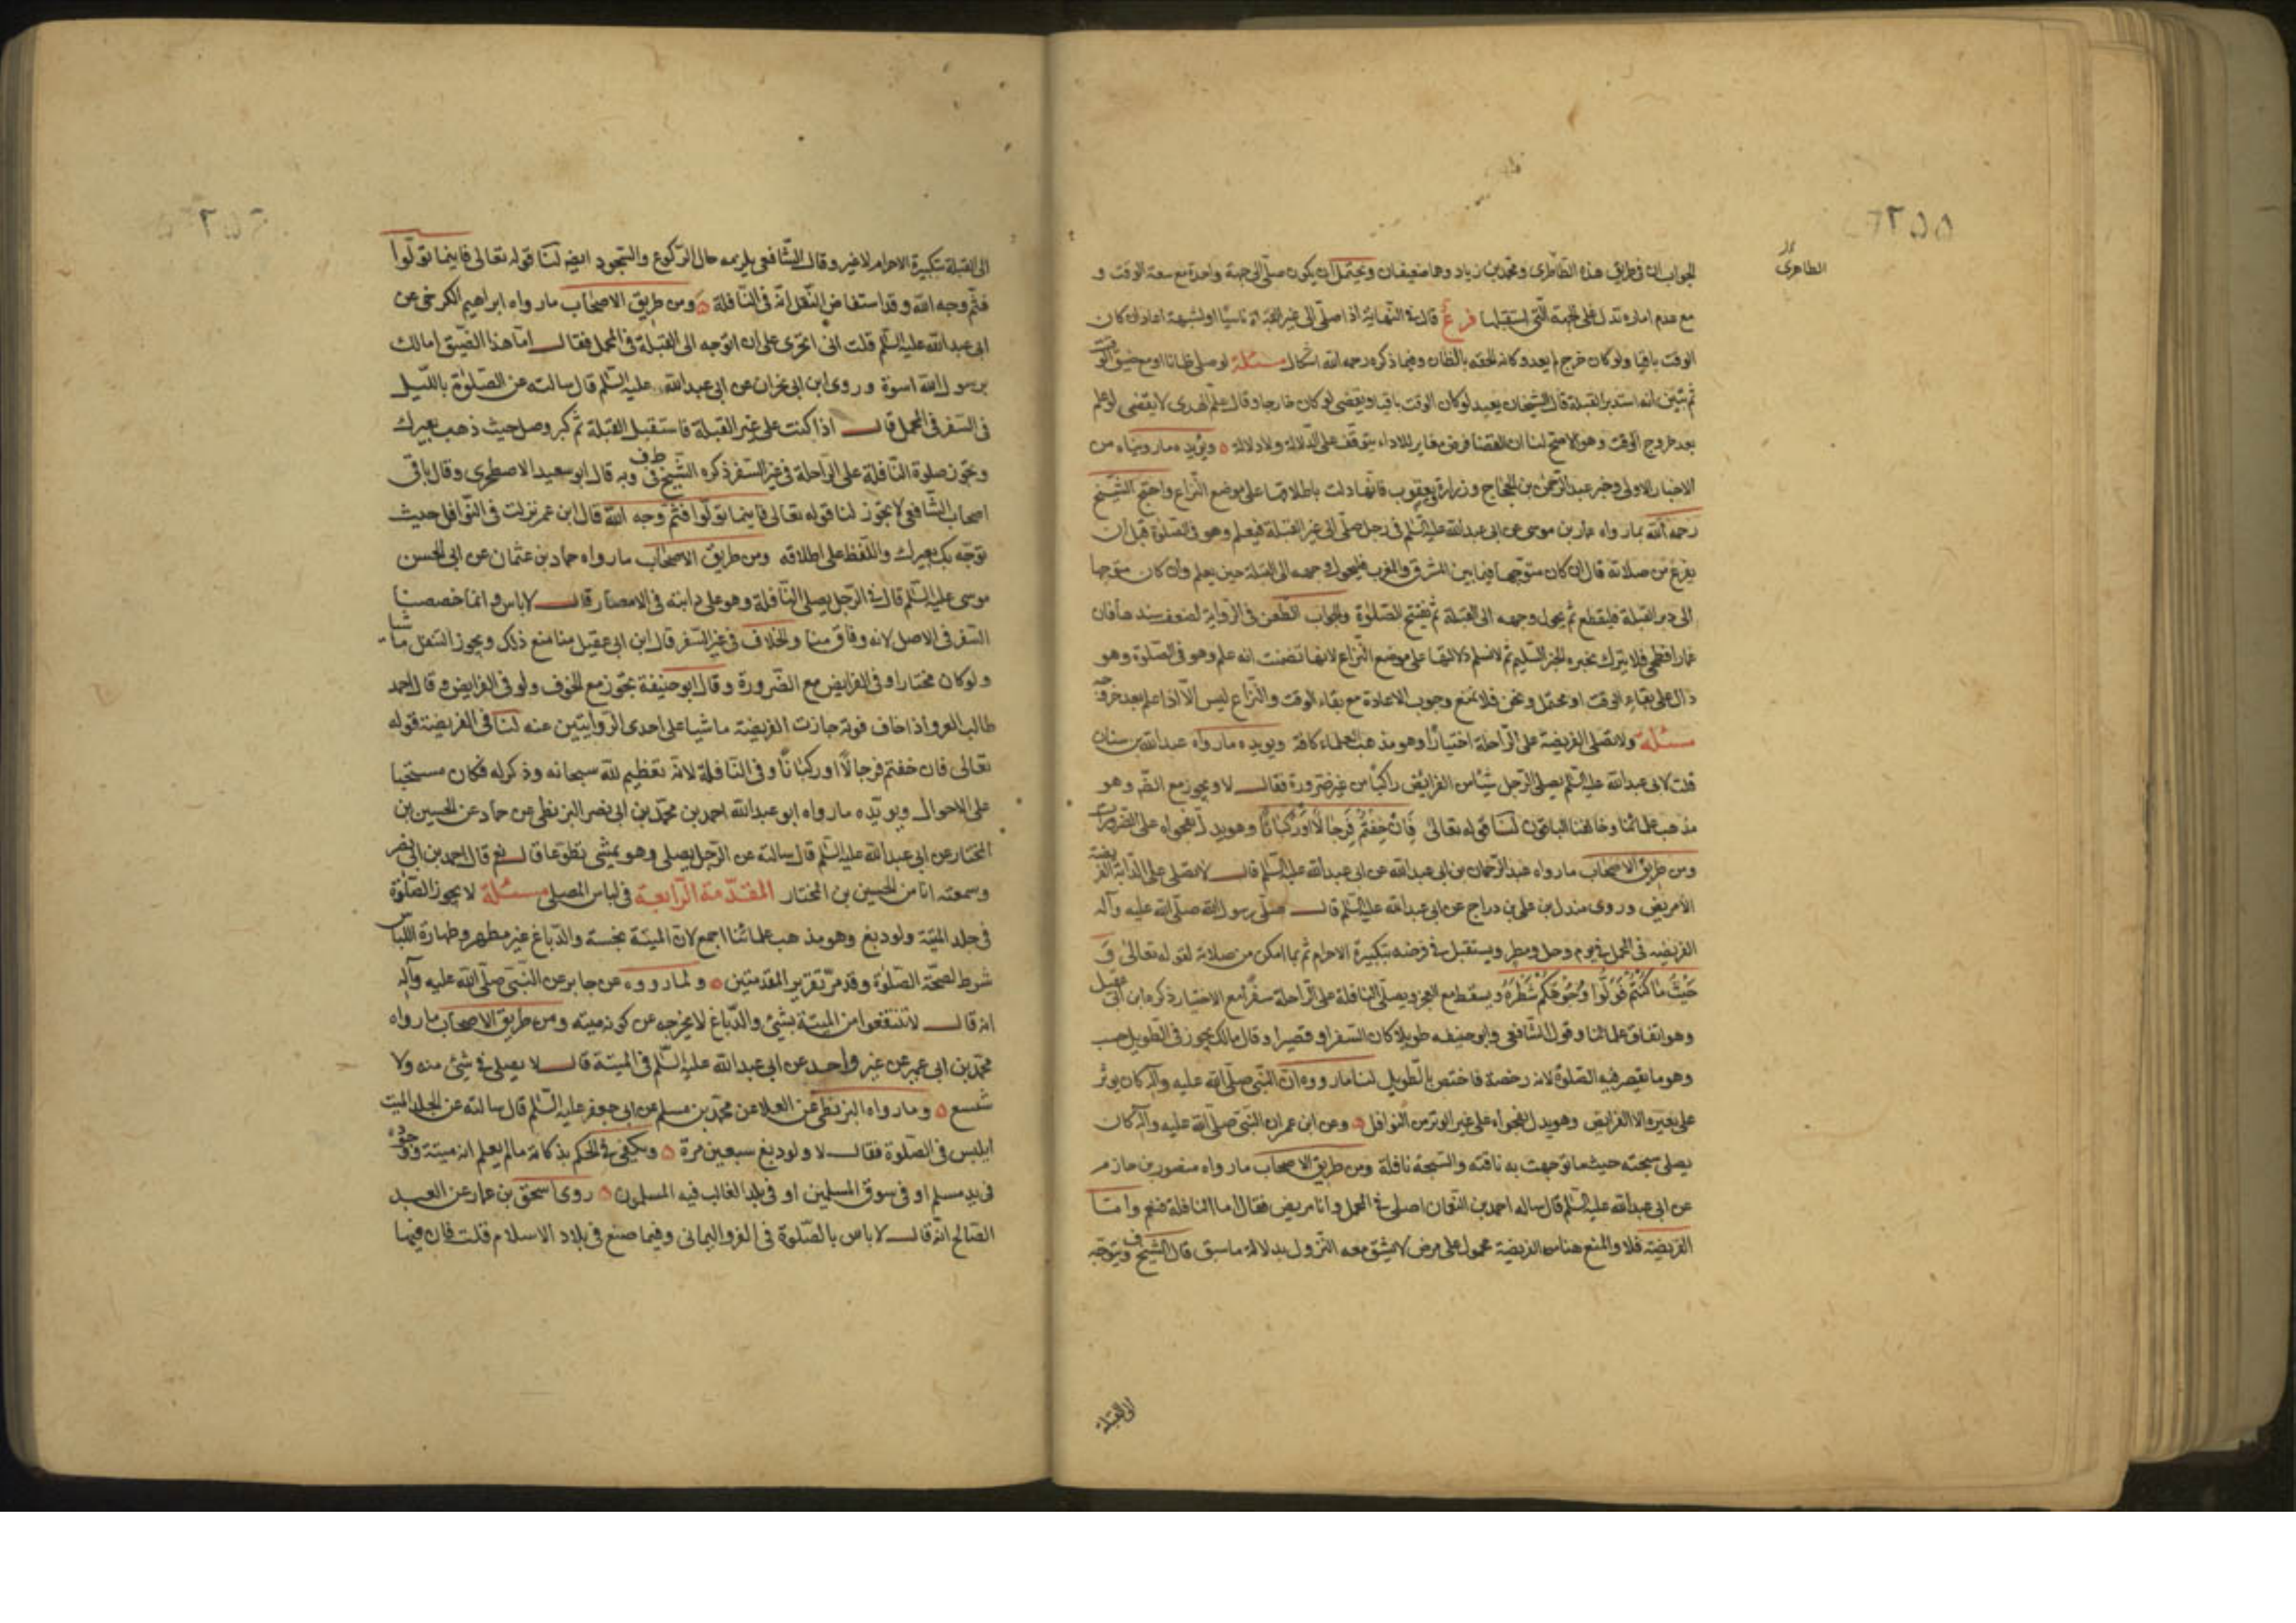 ٢٥٥
الطاهرى
الجواب ان فى طريق هذه الطاطرى ومحمد بن زياد وهما ضعيفان ويحتمل ان يكون صلى الى جهة واحدة مع سعة الوقت و
مع عدم امارة تدل على الجهة التى استقبلها فرع قال فى النهاية اذا صلى الى غير القبلة ناسيا او لشبهة اعاد ان كان
الوقت باقيا ولو كان خرج لم يعد وكانه الحقه بالظان وفيما ذكره رحمه الله اشكال مسئلة لو صلى ظانا او مع ضيق الوقت
ثم تبين انه استدبر القبلة قال الشيخان يعيد لو كان الوقت باقيا ويقضى لو كان خارجا وقال علم الهدى لا يقضى لو علم
بعد خروج الوقت وهو الاصح لنا ان القضا فرض مغاير للاداء يتوقف على الدلالة ولا دلالة ويؤيده ما رويناه من
الاخبار الاولى وخبر عبد الرحمن بن الحجاج وزرارة ويعقوب فانها دلت باطلاقها على موضع النزاع واحتج الشيخ
رحمه الله بما رواه عمار بن موسى عن ابى عبد الله عليه السلم فى رجل صلى الى غير القبلة فيعلم وهو فى الصلوة قبل ان
يفرغ من صلاته قال ان كان متوجها فيما بين المشرق والمغرب فليحول وجهه الى القبلة حين يعلم وان كان متوجها
الى دبر القبلة فليقطع ثم يحول وجهه الى القبلة ثم يفتتح الصلوة والجواب الطعن فى الرواية لضعف سندها فان
عمارا فطحى فلا يترك بخبره الخبر السليم ثم لا نسلم دلالتها على موضع النزاع لانها تضمنت انه علم وهو فى الصلوة وهو
دال على بقاء الوقت او محتمل ونحن فلا نمنع وجوب الاعادة مع بقاء الوقت والنزاع ليس الا اذا علم بعد خروجه
مسئلة ولا تصلى الفريضة على الراحلة اختيارا وهو مذهب العلماء كافة ويويده ما رواه عبد الله بن سنان
قلت لابى عبد الله عليه السلم يصلى الرجل شيئا من الفرائض راكبا من غير ضرورة فقال لا ويجوز مع الضرورة وهو
مذهب علمائنا وخالفنا الباقون لنا قوله تعالى فَاِنْ خِفْتُمْ فَرِجَالًا اَوْ رُكْبَانًا وهو يدل بفحواه على الضرورات
ومن طريق الاصحاب ما رواه عبد الرحمان بن ابى عبد الله عن ابى عبد الله عليه السلم قال لا يصلى على الدابة الفريضة
الا مريض وروى مندل بن على بن دراج عن ابى عبد الله عليه السلم قال صلى رسول الله صلى الله عليه وآله
الفريضة فى المحمل فى يوم وحل ومطر ويستقبل فى فرضه بتكبيرة الاحرام ثم بما امكن من صلاته لقوله تعالى وَ
حَيْثُ مَا كُنْتُمْ فَوَلُّوا وُجُوهَكُمْ شَطْرَهُ ويسقط مع العجز ويصلى النافلة على الراحلة سفرا مع الاختيار ذكره ابن ابى عقيل
وهو اتفاق علمائنا وقول الشافعى وابو حنيفه طويلا كان السفر او قصيرا وقال مالك يجوز فى الطويل حسب
وهو ما يقصر فيه الصلوة لانه رخصة فاختص بالطويل لنا ما رووه ان النبى صلى الله عليه وآله كان يوتر
على بعيره الا الفرايض وهو يدل بفحواه على غير الوتر من النوافل وعن ابن عمر ان النبى صلى الله عليه وآله كان
يصلى سبحته حيث ما توجهت به ناقته والسبحة نافلة ومن طريق الاصحاب ما رواه منصور بن حازم
عن ابى عبد الله عليه السلم قال ساله احمد بن النعمان اصلى فى المحمل وانا مريض فقال اما النافلة فنعم واما
الفريضة فلا والمنع هنا من الفريضة محمول على مرض لا يشق معه النزول بدلالة ما سبق قال الشيخ فى ف ويتوجه
الى القبلة
٢٥٦
الى القبلة بتكبيرة الاحرام لا غير وقال الشافعى يلزمه حال الركوع والسجود ايضا لنا قوله تعالى فاينما تولوا
فثم وجه الله وقد استفاض النقل انه فى النافلة ومن طريق الاصحاب ما رواه ابراهيم الكرخى عن
ابى عبد الله عليه السلم قلت انى اتحرى على ان اتوجه الى القبلة فى المحمل فقال اما هذا الضيق اما لك
برسول الله اسوة وروى ابن ابى نجران عن ابى عبد الله عليه السلم قال سالته عن الصلوة بالليل
فى السفر فى المحمل قال اذا كنت على غير القبلة فاستقبل القبلة ثم كبر وصل حيث ذهب بعيرك
ويجوز صلوة النافلة على الراحلة فى غير السفر ذكره الشيخ فى ط ف وبه قال ابو سعيد الاصطخرى وقال باقى
اصحاب الشافعى لا يجوز لنا قوله تعالى فاينما تولوا فثم وجه الله قال ابن عمر نزلت فى النوافل حيث
توجه بك بعيرك واللفظ على اطلاقه ومن طريق الاصحاب ما رواه حماد بن عثمان عن ابى الحسن
موسى عليه السلم قال فى الرجل يصلى النافلة وهو على دابته فى الامصار قال لا باس وانما خصصنا
السفر فى الاصل لانه وفاق منا والخلاف فى غير السفر قال ابن ابى عقيل منا منع ذلك ويجوز التنفل ماشيا
ولو كان مختارا وفى الفرايض مع الضرورة وقال ابو حنيفة يجوز مع الخوف ولو فى الفرايض وقال احمد
طالب العدو اذا خاف فوته جازت الفريضة ماشيا على احدى الروايتين عنه لنا فى الفريضة قوله
تعالى فان خفتم فرجالا او ركبانا وفى النافلة لانه تعظيم لله سبحانه وذكر له فكان مستحبا
على الاحوال ويويده ما رواه ابو عبد الله احمد بن محمد بن ابى نصر البزنطى عن حماد عن الحسين بن
المختار عن ابى عبد الله عليه السلم قال سالته عن الرجل يصلى وهو يمشى تطوعا قال نعم قال احمد بن ابى نصر
وسمعته انا من الحسين بن المختار المقدمة الرابعة فى لباس المصلى مسئلة لا يجوز الصلوة
فى جلد الميتة ولو دبغ وهو مذهب علمائنا اجمع لان الميتة نجسة والدباغ غير مطهر وطهارة اللباس
شرط لصحة الصلوة وقد مر تقرير المقدمتين ولما رووه عن جابر عن النبى صلى الله عليه وآله
انه قال لا تنتفعوا من الميتة بشئ والدباغ لا يخرجه عن كونه ميته ومن طريق الاصحاب ما رواه
محمد بن ابى عمير عن غير واحد عن ابى عبد الله عليه السلم فى الميتة قال لا يصلى فى شئ منه ولا
شسع وما رواه البزنطى عن العلا عن محمد بن مسلم عن ابى جعفر عليه السلم قال سالته عن الجلد الميت
ايلبس فى الصلوة فقال لا ولو دبغ سبعين مرة ويكفى فى الحكم بذكاته ما لم يعلم انه ميتة وجوده
فى يد مسلم او فى سوق المسلمين او فى بلد الغالب فيه المسلمون روى اسحق بن عمار عن العبد
الصالح انه قال لا باس بالصلوة فى الفرو اليمانى وفيما صنع فى بلاد الاسلام قلت فان فيها